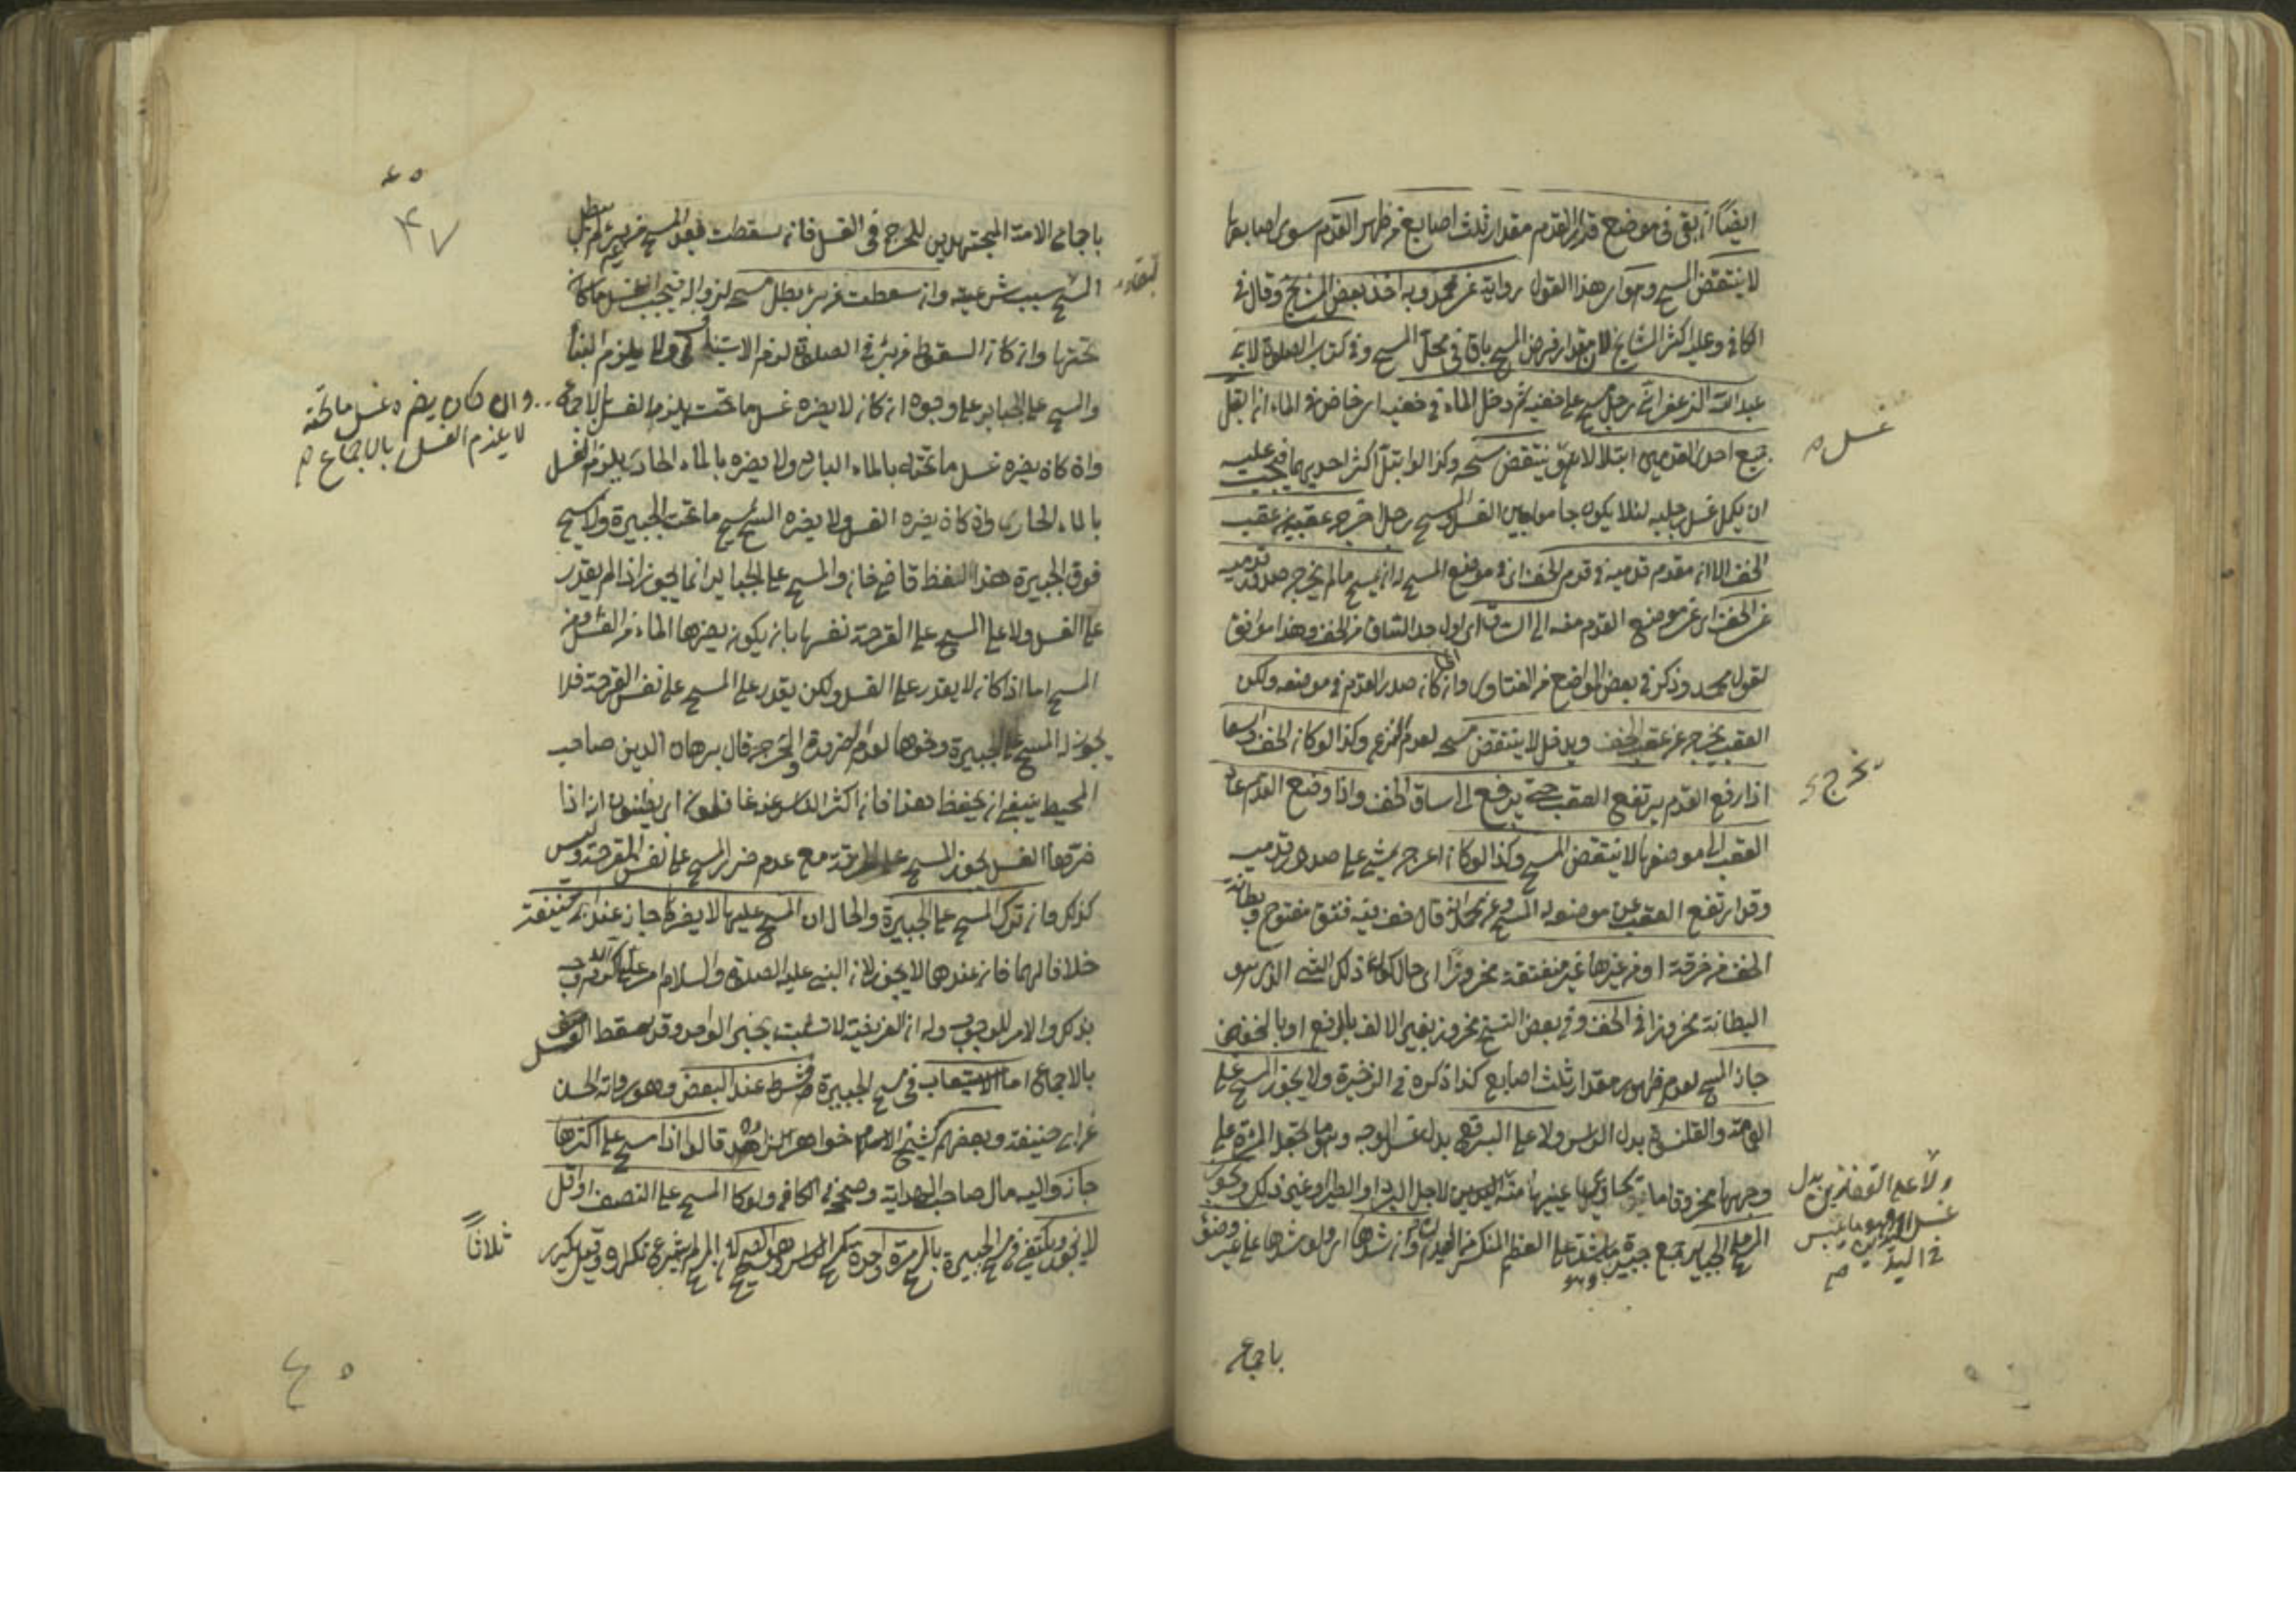 ايضا ان بقي في موضع قدم القدم مقدار ثلث اصابع من ظهر القدم سوى اصابعها
لا ينتقض المسح وهو اي هذا القول رواية عن محمد وبه اخذ بعض المشايخ وقال في
الكافي وعليه اكثر المشايخ لان مقدار فرض المسح باق في محل المسح وفي كتاب الصلوة لابي
عبد الله الزعفراني رجل مسح على خفيه ثم دخل الماء في خفيه اي خاض في الماء ان ابتل
جميع احدى القدمين ابتلالا ينتقض مسحه وكذا لو ابتل اكثر احديهما فيجب عليه
غسل
ان يكمل غسل رجليه لئلا يكون جامعا بين الغسل والمسح رجل اخرج عقبيه من عقب
الخف الا ان مقدم قدميه في قدم الخف اي في موضع المسح له ان يمسح ما لم يخرج صدور قدميه
عن الخف اي عن موضع القدم منه الى الساق اي اول حد الساق من الخف وهذا موافق
لقول محمد وذكر في بعض المواضع من الفتاوى وان كان صدر القدم في موضعه ولكن
العقب يخرج عن عقب الخف ويدخل لا ينتقض مسحه لعدم وكذا لو كان الخف واسعا
يخرج
اذا رفع القدم يرتفع العقب حتى يرفع الى ساق الخف واذا وضع القدم عاد
العقب الى موضعها لا ينتقض المسح وكذا لو كان اعرج يمشي على صدور قدميه
وقد ارتفع العقب عن موضعه له المسح وعن محمد انه قال خف فيه فتق مفتوح وبطانة
الخف من خرقة او من غيرها غير منفتقة مخروزا اي حال كون ذلك الشيء الذي هو
البطانة مخروزا في الخف وفي بعض النسخ مخروز بغير الالف بالرفع او بالخفض
جاز المسح لعدم ظهور مقدار ثلث اصابع كذا ذكره في الذخيرة ولا يجوز المسح على
العمامة والقلنسوة بدل الراس ولا على البرقع بدل غسل الوجه وهو ما تجعل المرأة على
وجهها
لاجل البرد او الطير او غير ذلك ويجوز
ولا على القفازين بدل
غسل اليدين وهو ما يلبس
في اليد
المسح على الجباير جمع جبيرة وهو ما يشد على العظم المنكسر وان شدها اي ولو شدها على غير وضوء
باجماع
باجماع الامة المجتهدين للحرج في الغسل فان سقطت بعد المسح من غير برء لم يبطل
المسح بسبب شرعيته وان سقطت من برء بطل مسحه لزواله فيجب غسل ما كان
تحتها وان كان السقوط من برء في الصلوة لزم الاستيناف ولا يلزم البناء
والمسح على الجباير على وجوه ان كان لا يضره غسل ما تحت يلزم الغسل بالاجماع
وان كان يضره غسل ما تحته
لا يلزم الغسل بالاجماع
وان كان يضره غسل ما تحته بالماء البارد ولا يضره بالماء الحار يلزم الغسل
بالماء الحار وان كان يضره الغسل ولا يضره المسح يمسح ما تحت الجبيرة ولا يمسح
فوق الجبيرة هذا لفظ قاضي خان والمسح على الجباير انما يجوز اذا لم يقدر
على الغسل ولا على المسح على القرحة نفسها بان يكون يضرها الماء من الغسل ومن
المسح اما اذا كان لا يقدر على الغسل ولكن يقدر على المسح على نفس القرحة فلا
يجوز له المسح على الجبيرة ونحوها لعدم الضرورة والحرج قال برهان الدين صاحب
المحيط ينبغي ان يحفظ هذا فان اكثر الناس عنه غافلون اي يظنون ان اذا
ضرها الغسل يجوز المسح على الخرقة مع عدم ضرر المسح على نفس القرحة وليس
كذلك وان ترك المسح على الجبيرة والحال ان المسح عليها لا يضره جاز عند ابي حنيفة
خلافا لهما فان عندهما لا يجوز لان النبي عليه الصلوة والسلام امر عليا كرم الله وجهه
بذلك والامر للوجوب وله ان الفرضية لا تثبت بخبر الواحد وقد سقط الغسل
بالاجماع اما الاستيعاب في مسح الجبيرة فشرط عند البعض وهو رواية الحسن
عن ابي حنيفة وبعضهم كشيخ الاسلام خواهر زاده قالوا اذا مسح على اكثرها
جاز واليه مال صاحب الهداية وصححه في الكافي ولو كان المسح على النصف او اقل
لا يجوز ويكتفي في مسح الجبيرة بالمسح مرة واحدة كمسح الراس وهو الصحيح لان المسح لم يشرع تكراره وقيل يكرر
ثلاثا